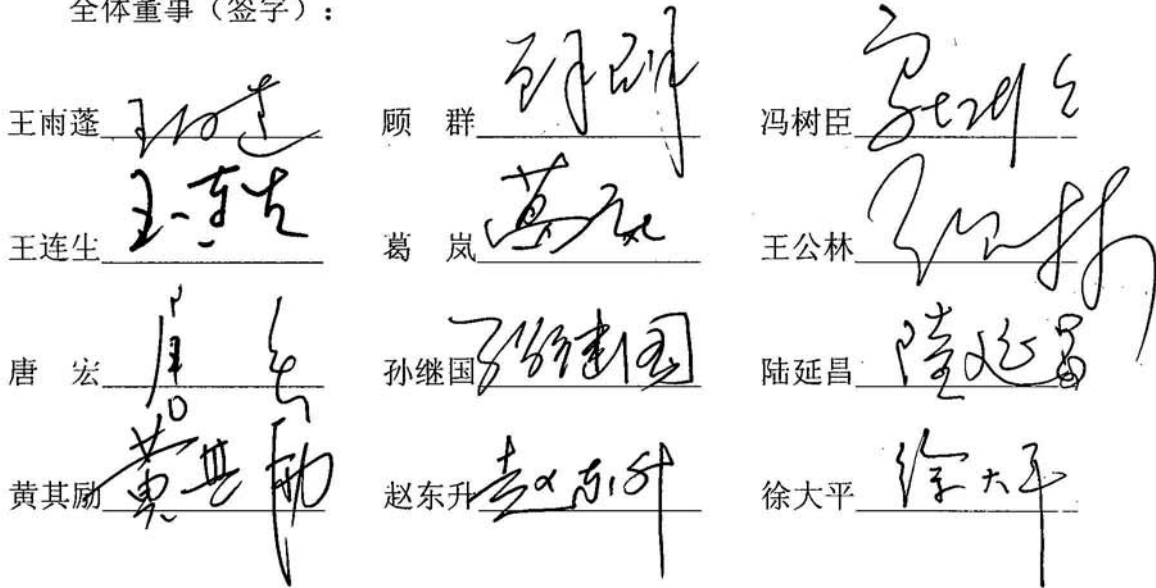 全体董事（签字）：
王雨蓬 王雨蓬 顾 群 顾群 冯树臣 冯树臣
王连生 王连生 葛 岚 葛岚 王公林 王公林
唐 宏 唐宏 孙继国 孙继国 陆延昌 陆延昌
黄其励 黄其励 赵东升 赵东升 徐大平 徐大平